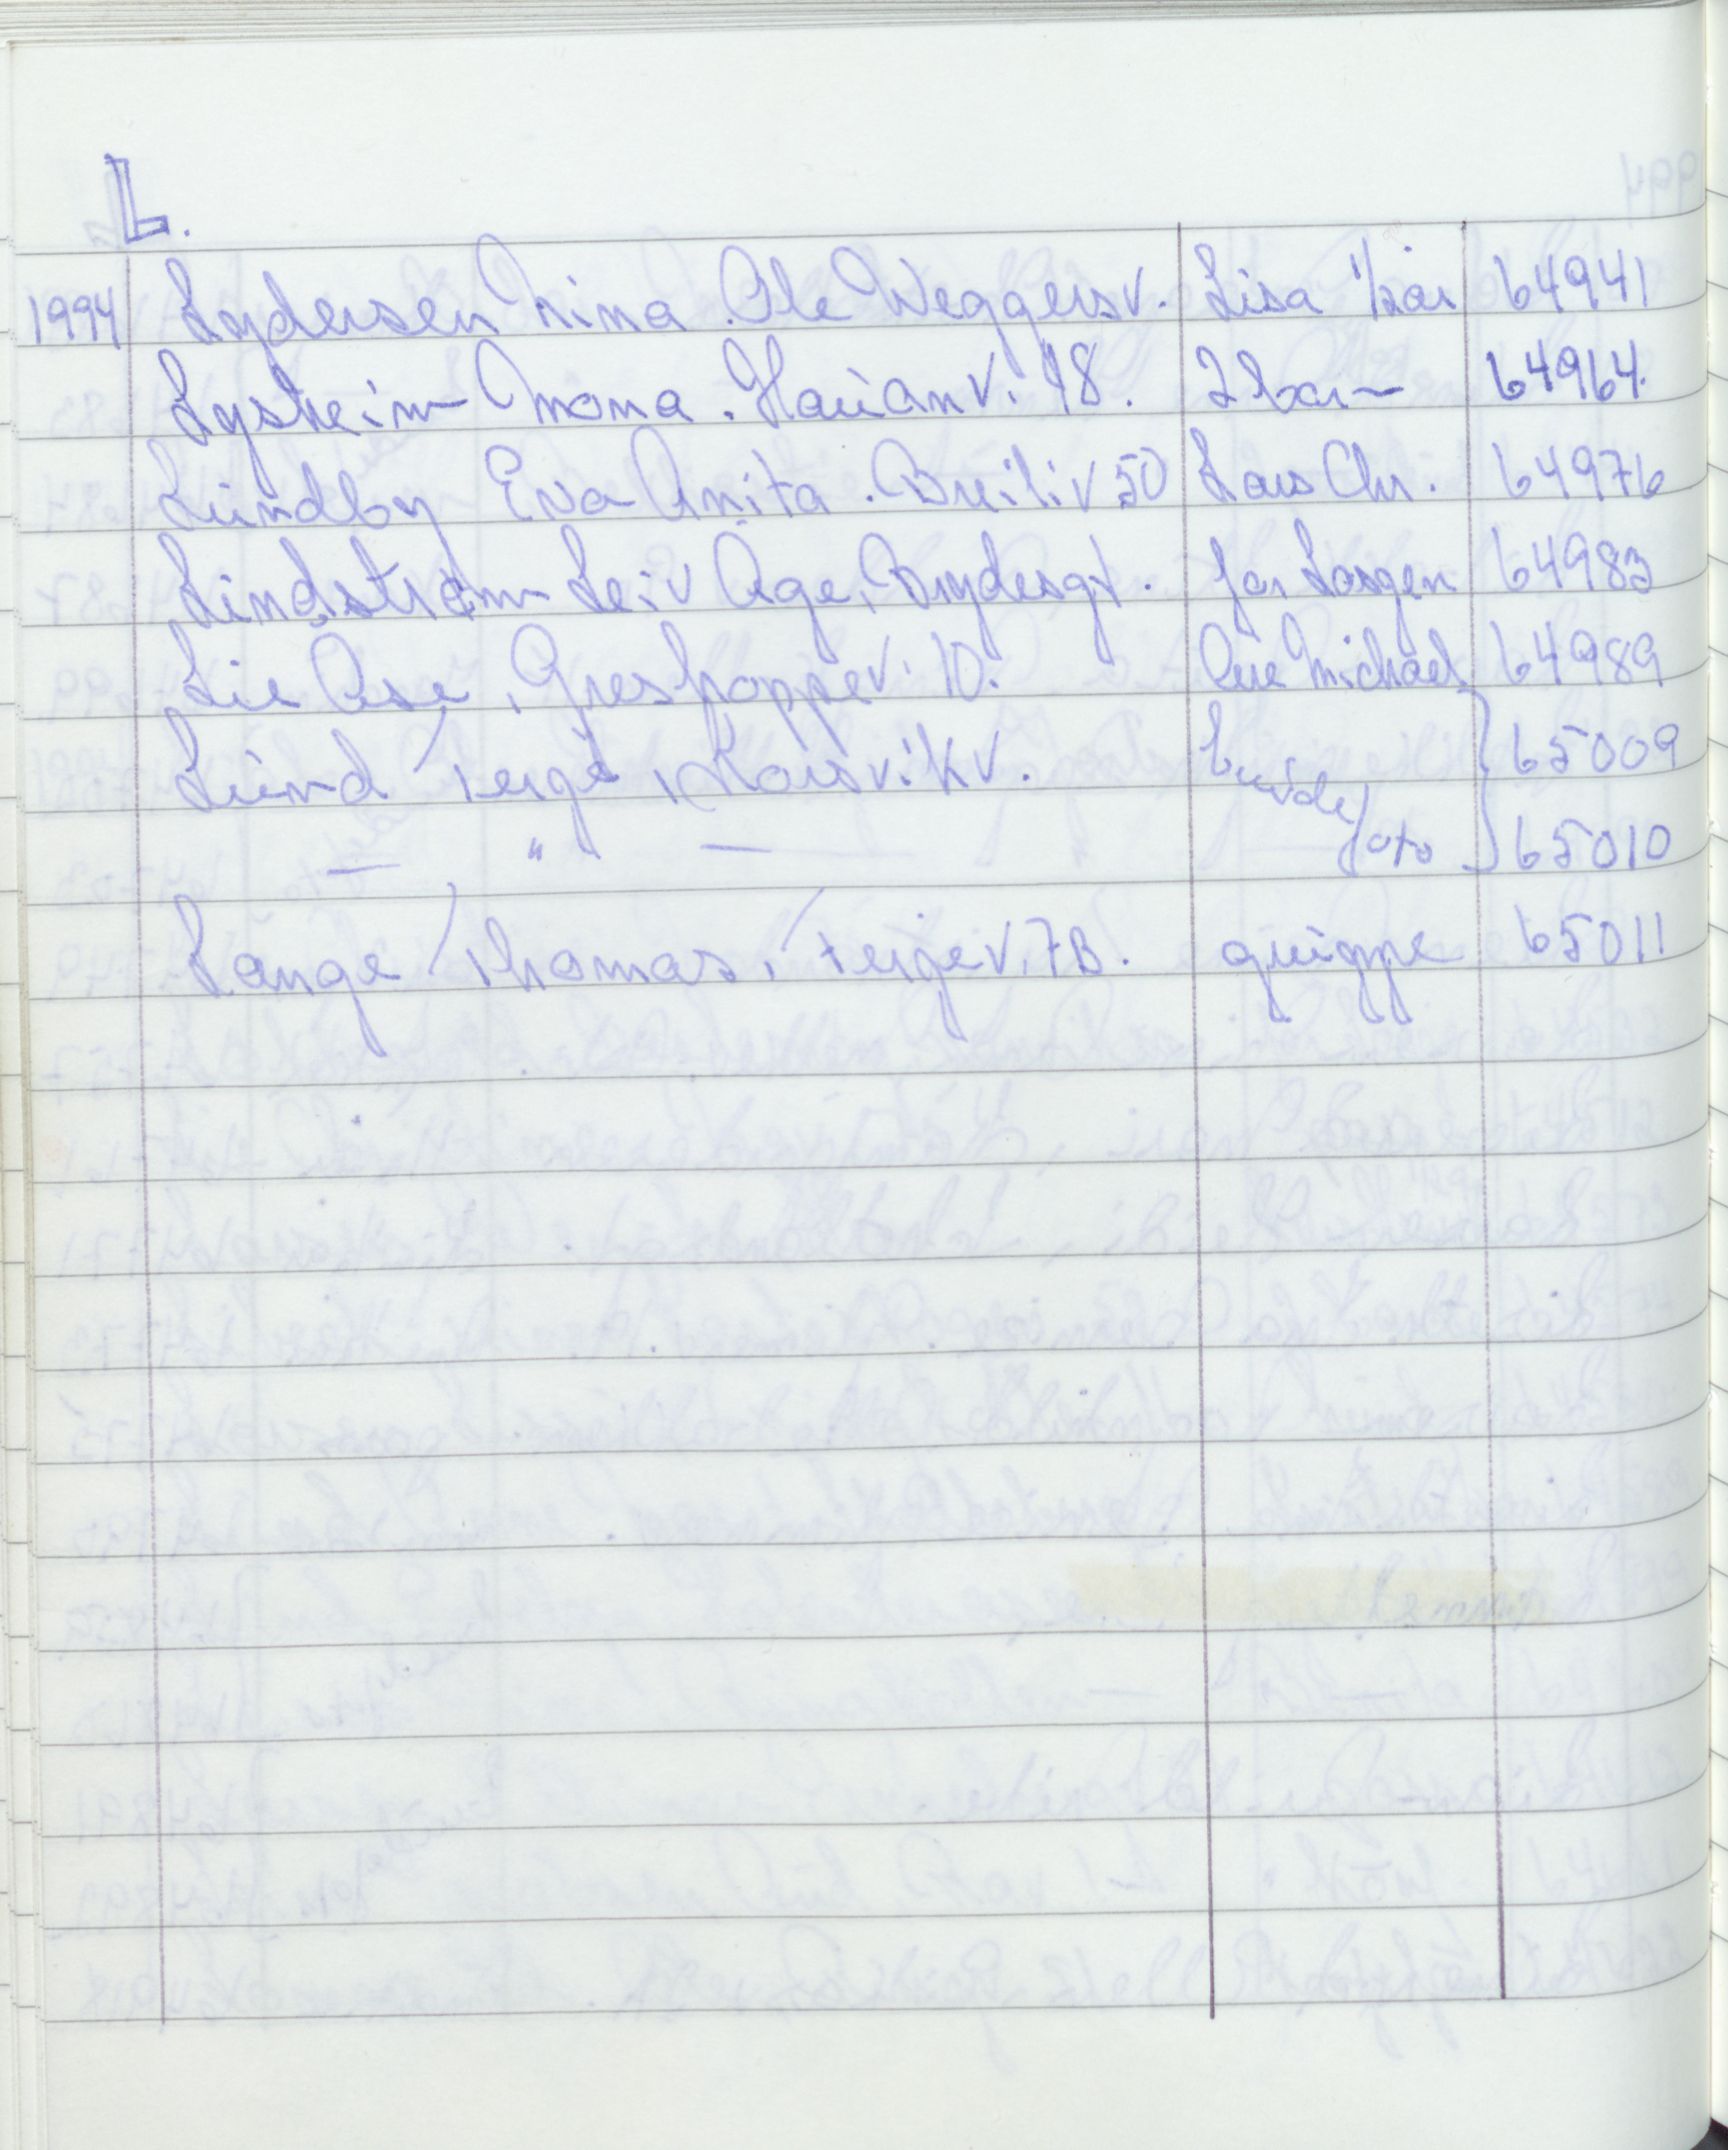 L.
1994 Lydersen Nina. Ole Weggersv. Lisa 1/2 år 64941
Lysheim Mona. Hauanv. 18. 2 barn 64964.
Lundby Eva Anita. Breiliv 50 Lars Chr. 64976
Lindstrøm Leiv Åge, Brydesgt. Jørgen 64983
Lie Åse, Greshoppev. 10. Michael 64989
Lund Terje, Korsvikv. brude 65009
— " — foto 65010
Lange Thomas, Terjev. 7B. gruppe 65011